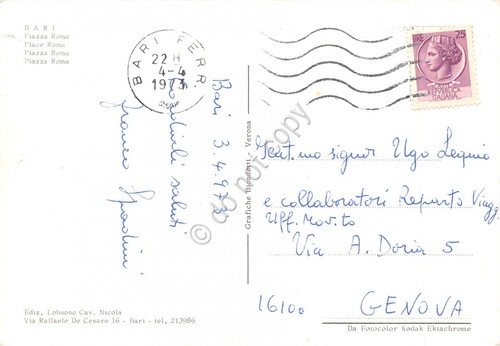 BARI
Piazza Roma
Place Roma
Piazza Roma
Piazza Roma
BARI FERR.
22 H
4-4
1973
25
REPUBBLICA
ITALIANA
Bari 3.4.973
Cordiali saluti
Franco Spadini
do not copy
Grafiche Bignotti - Verona
Gent.mo signor Ugo Lequio
e collaboratori Reparto Viagg.
Uff. Mov.to
Via A. Doria 5
16100 GENOVA
Ediz. Lobuono Cav. Nicola
Via Raffaele De Cesare 16 - Bari - tel. 213986
Da Fotocolor Kodak Ektachrome